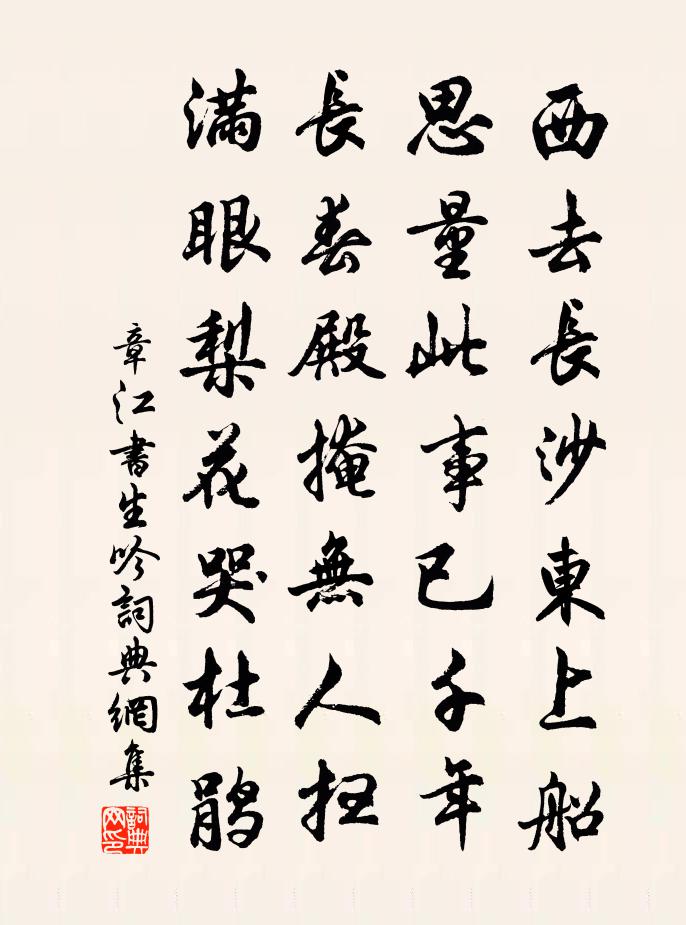 西去長沙東上船
思量此事已千年
長春殿掩無人扫
滿眼梨花哭杜鹃
章江書生吟詞典網集
詞典
网印